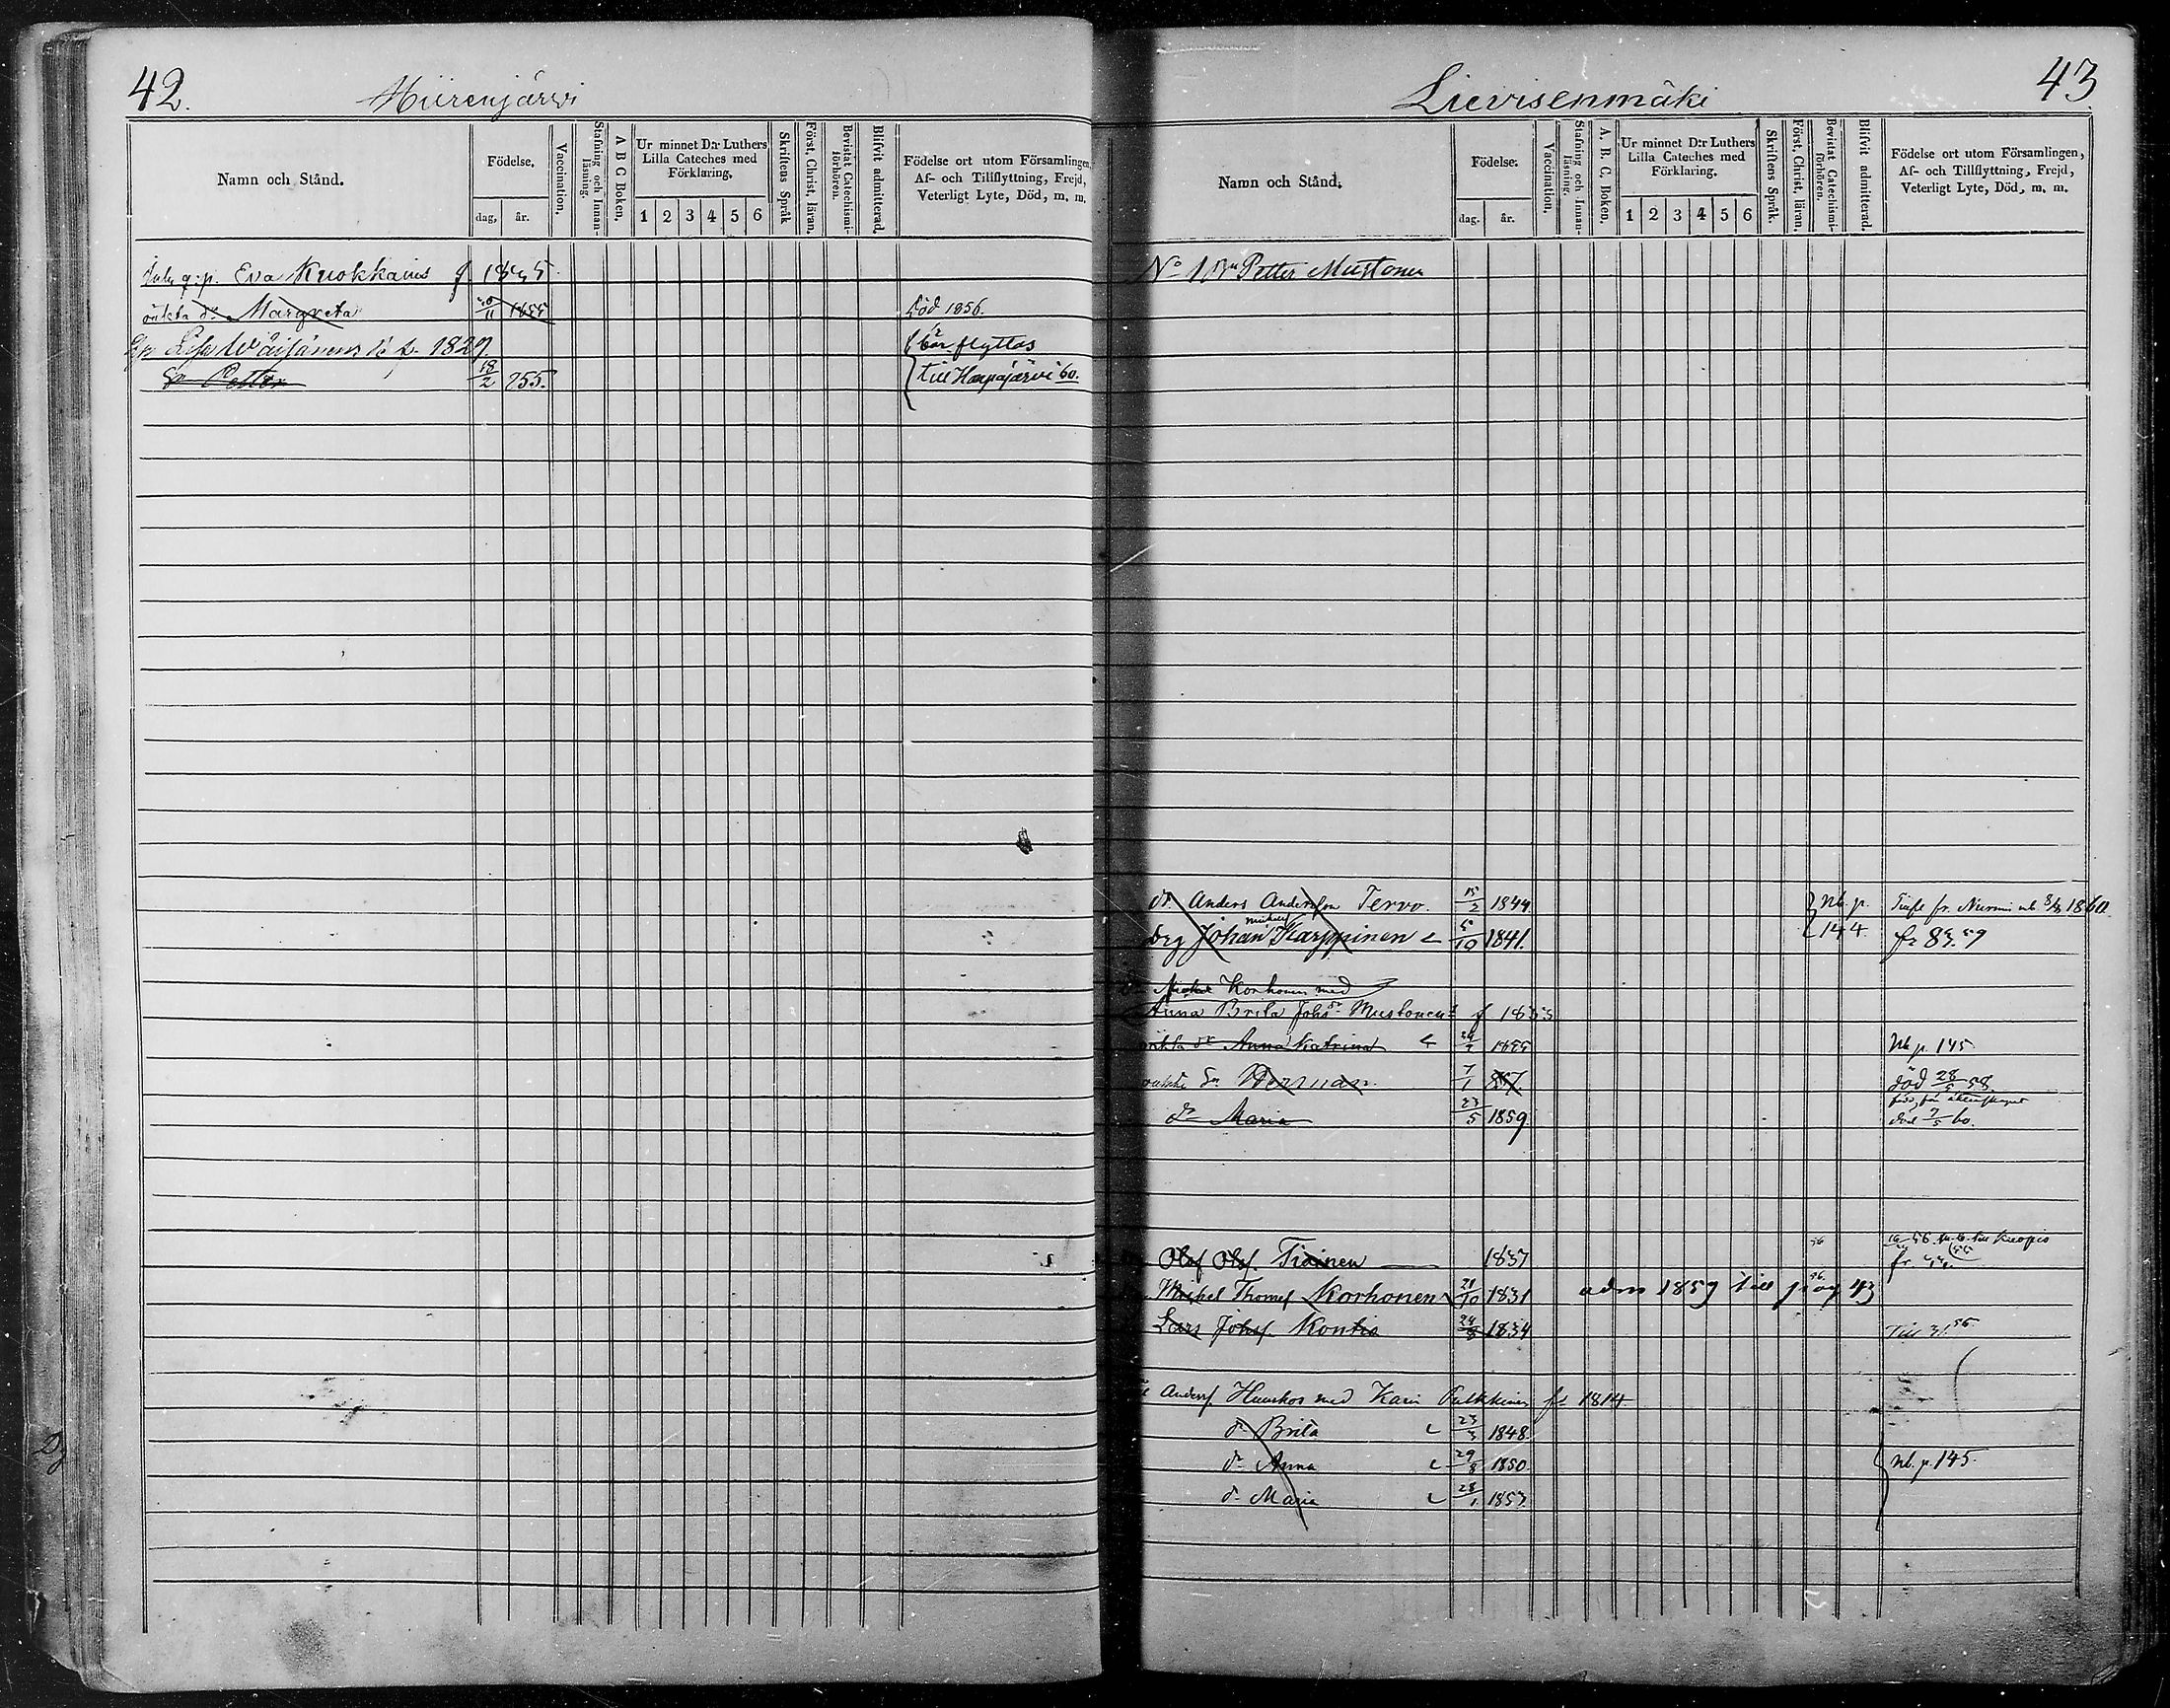 42.
Hiirenjärvi
Namn och Stånd.
Födelse.
dag. år.
Vaccination.
Stafning och Innanläsning.
A B C Boken.
Ur minnet D:r Luthers Lilla Cateches med Förklaring.
1 2 3 4 5 6
Skriftens Språk
Först. Christ. läran.
Bevistat Catechismiförhören.
Blifvit admitterad.
Födelse ort utom Församlingen, Af- och Tillflyttning, Frejd, Veterligt Lyte, Död, m. m.
Eva Knokkains f 1835
oäkta dr Margreta 11 1855 död 1856.
Lisa Wäisänens f. 1829. bör flyttas
Sn Petter 18/2 855. till Haapajärvi 60.
43
Lievisenmäki
Namn och Stånd.
Födelse.
dag. år.
Vaccination.
Stafning och Innanläsning.
A. B. C. Boken.
Ur minnet D:r Luthers Lilla Cateches med Förklaring.
1 2 3 4 5 6
Skriftens Språk.
Först. Christ. läran.
Bevistat Catechismiförhören.
Blifvit admitterad.
Födelse ort utom Församlingen, Af- och Tillflyttning, Frejd, Veterligt Lyte, Död, m. m.
No 1 Petter Mustonen
dr Anders Andersson Tervo. 15/2 1844. Nb. p. fr. Nurmis 1860
Drg Johan Karppinen 6/10 1841. 144 fr 83. 59
Michel Korhonen med
Anna Brita Johsdr Mustonen f 1833
oäkta dr Anna Katrina 1855 Nb p. 145
oäkta Sn Herman 7/1 857. död 28/5 58.
dr Maria 23/5 1859 död 7/5 60.
Olof Olofs. Tiainen 1837 56. till Kuopio
Michel Thomss Korhonen 21/10 1831 adm 1859 till pag 43
Lars Johss. Kontio 24/8 1834 Till 31.56
Anderss. Huuskos med Karin Pulkkinen f. 1814
dr Brita 23/3 1848.
dr Anna 29/8 1850. Nb. p. 145.
dr Maria 28/1 1853